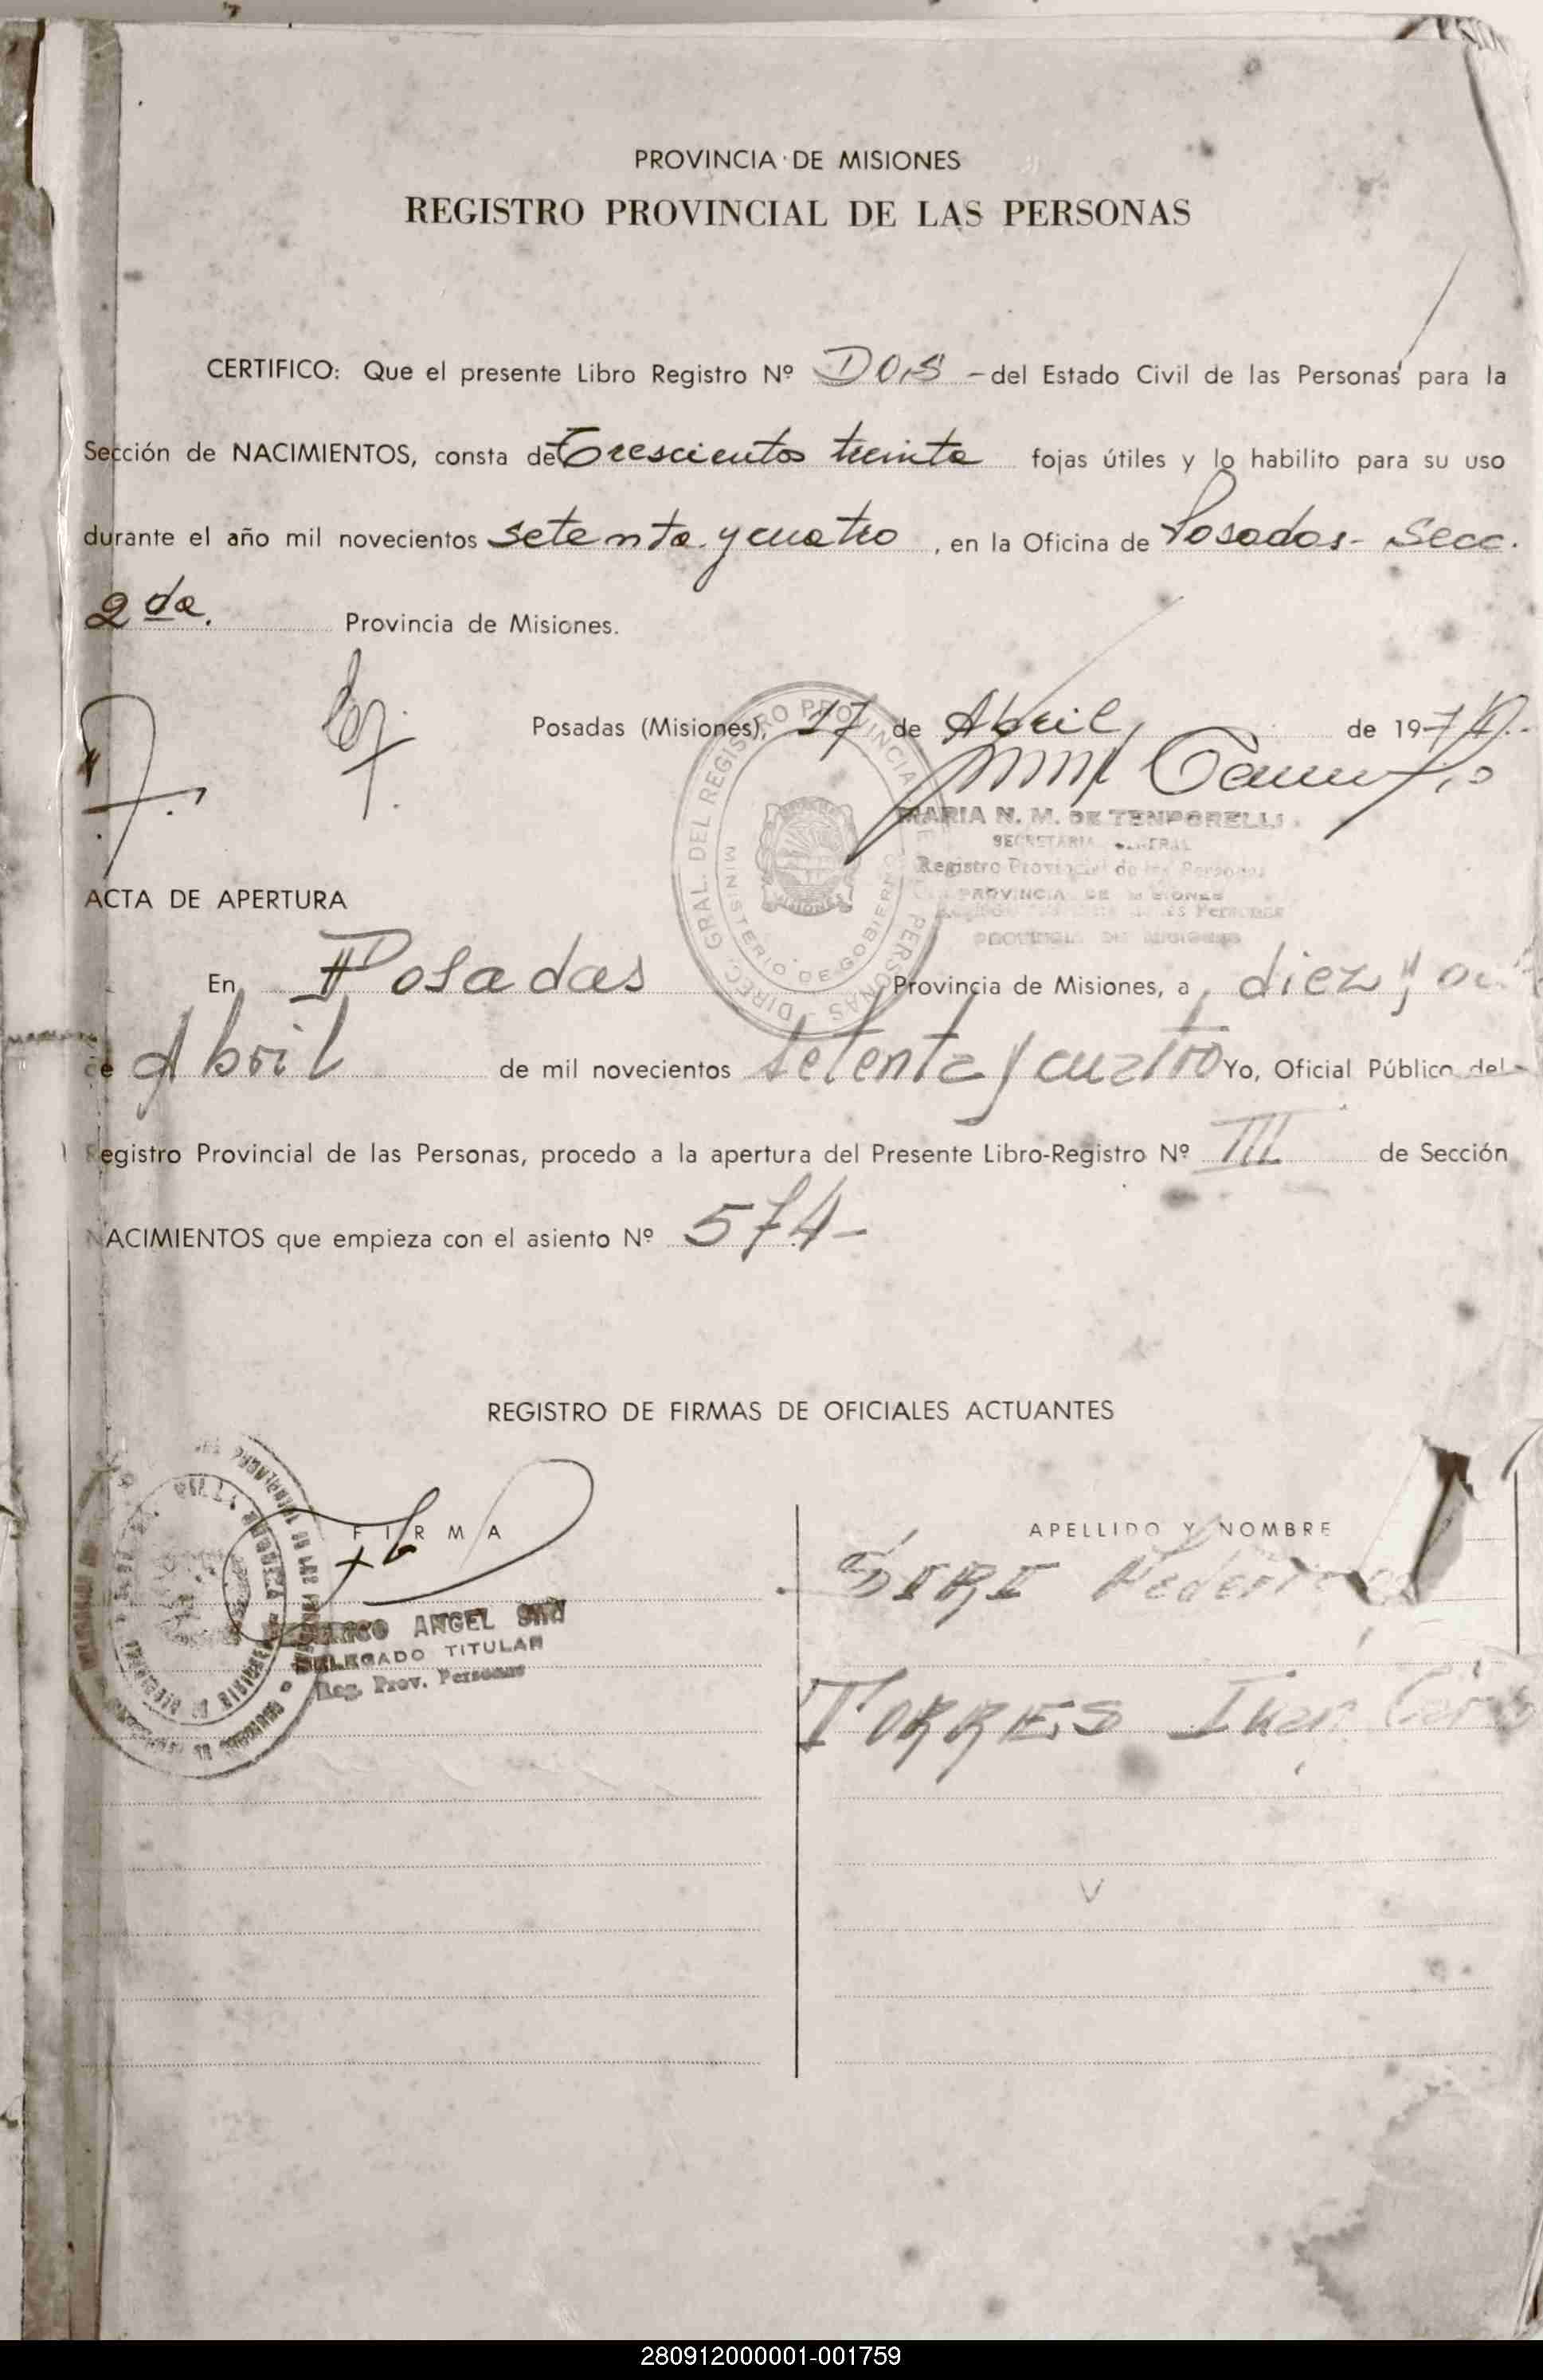 PROVINCIA DE MISIONES
REGISTRO PROVINCIAL DE LAS PERSONAS
CERTIFICO: Que el presente Libro Registro Nº DOS - del Estado Civil de las Personas para la
Sección de NACIMIENTOS, consta de Trescientos treinta fojas útiles y lo habilito para su uso
durante el año mil novecientos setenta y cuatro, en la Oficina de Posadas - Secc.
2da. Provincia de Misiones.
Posadas (Misiones), 17 de Abril de 1974.-
DIREC. GRAL. DEL REGISTRO PROVINCIAL DE PERSONAS
MINISTERIO DE GOBIERNO
MISIONES
MARIA N. M. DE TENPORELLI
SECRETARIA GENERAL
Registro Provincial de las Personas
PROVINCIA DE MISIONES
PROVINCIA DE MISIONES
ACTA DE APERTURA
En Posadas Provincia de Misiones, a diez y
de Abril de mil novecientos setenta y cuatro Yo, Oficial Público del
Registro Provincial de las Personas, procedo a la apertura del Presente Libro-Registro Nº III de Sección
NACIMIENTOS que empieza con el asiento Nº 574-
REGISTRO DE FIRMAS DE OFICIALES ACTUANTES
FIRMA APELLIDO Y NOMBRE
SIRI
ANGEL SIRI
DELEGADO TITULAR
Reg. Prov. Personas
TORRES Juan
280912000001-001759